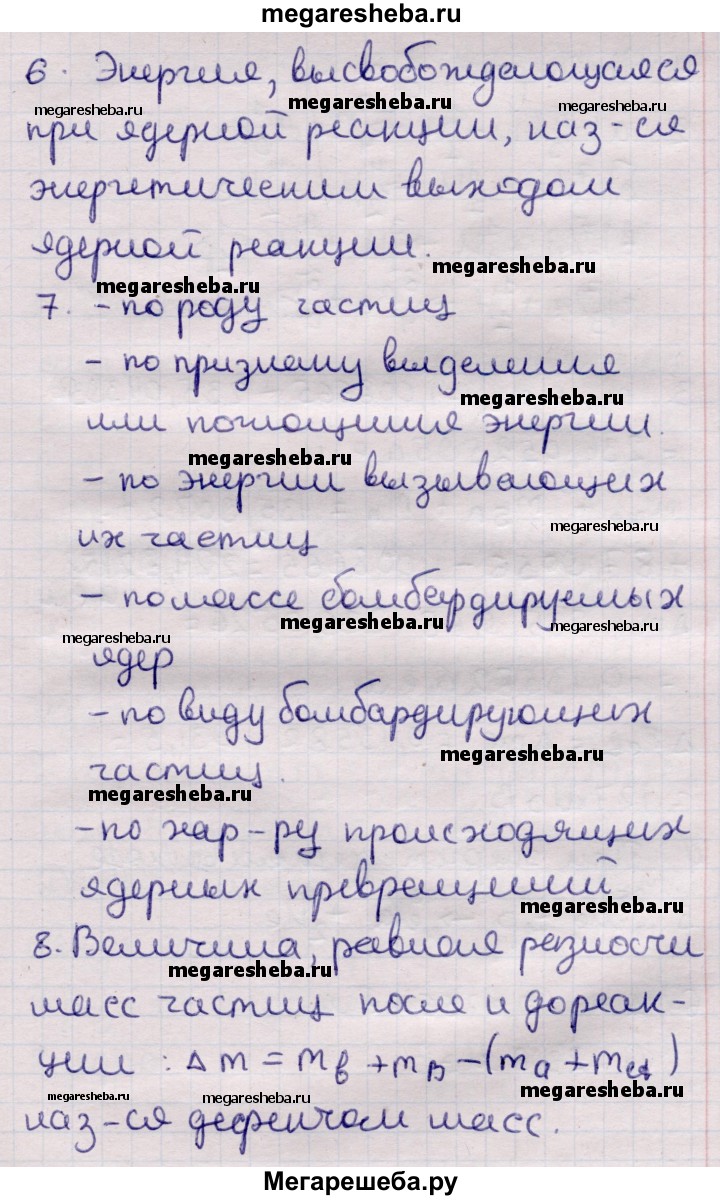 megaresheba.ru
6. Энергия, высвобождающаяся
megaresheba.ru megaresheba.ru megaresheba.ru
при ядерной реакции, наз-ся
энергетическим выходом
ядерной реакции.
megaresheba.ru
megaresheba.ru
7. - по роду частиц
- по признаку выделения
megaresheba.ru
или поглощения энергии.
megaresheba.ru
- по энергии вызывающих
megaresheba.ru
их частиц
- по массе бомбардируемых
megaresheba.ru megaresheba.ru megaresheba.ru
ядер
- по виду бомбардирующих
megaresheba.ru
частиц.
megaresheba.ru
- по хар-ру происходящих
ядерных превращений
megaresheba.ru
8. Величина, равная разности
megaresheba.ru
масс частиц после и до реак-
ции : Δm = m_b + m_B - (m_a + m_A)
megaresheba.ru megaresheba.ru megaresheba.ru
наз-ся дефектом масс.
Мегарешеба.ру